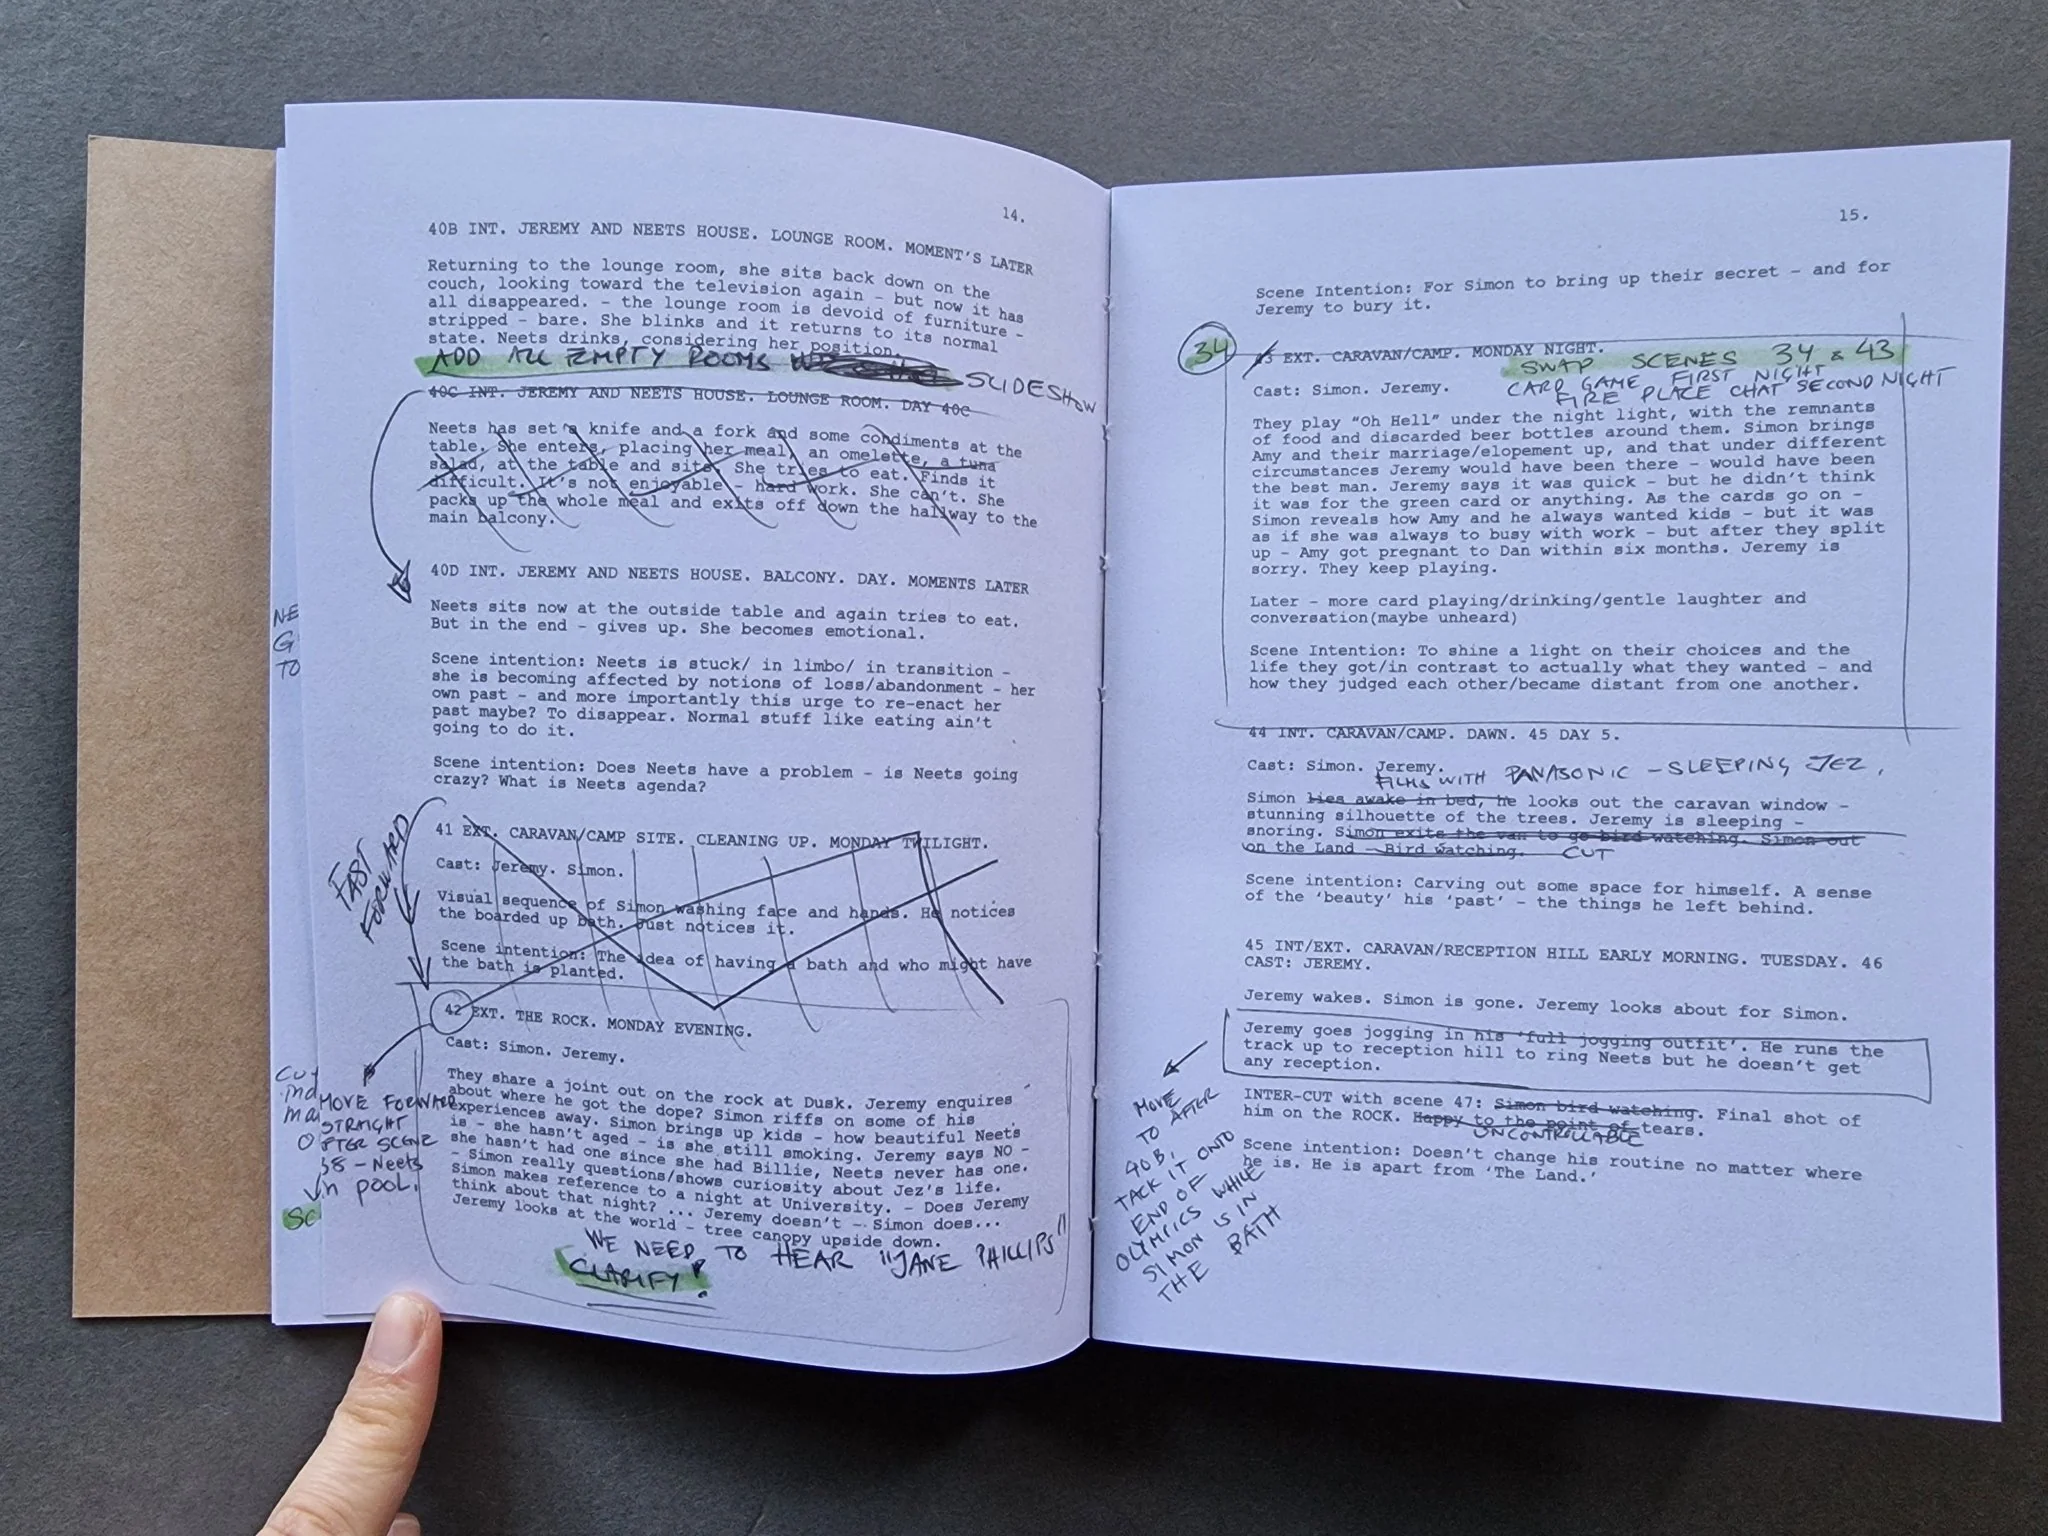 14.
40B INT. JEREMY AND NEETS HOUSE. LOUNGE ROOM. MOMENT'S LATER
Returning to the lounge room, she sits back down on the
couch, looking toward the television again - but now it has
all disappeared. - the lounge room is devoid of furniture -
stripped - bare. She blinks and it returns to its normal
state. Neets drinks, considering her position.
ADD ALL EMPTY ROOMS SLIDESHOW
40C INT. JEREMY AND NEETS HOUSE. LOUNGE ROOM. DAY 40C
Neets has set a knife and a fork and some condiments at the
table. She enters, placing her meal, an omelette, a tuna
salad, at the table and sits. She tries to eat. Finds it
difficult. It's not enjoyable - hard work. She can't. She
packs up the whole meal and exits off down the hallway to the
main balcony.
40D INT. JEREMY AND NEETS HOUSE. BALCONY. DAY. MOMENTS LATER
Neets sits now at the outside table and again tries to eat.
But in the end - gives up. She becomes emotional.
Scene intention: Neets is stuck/ in limbo/ in transition -
she is becoming affected by notions of loss/abandonment - her
own past - and more importantly this urge to re-enact her
past maybe? To disappear. Normal stuff like eating ain't
going to do it.
Scene intention: Does Neets have a problem - is Neets going
crazy? What is Neets agenda?
FAST
FORWARD
41 EXT. CARAVAN/CAMP SITE. CLEANING UP. MONDAY TWILIGHT.
Cast: Jeremy. Simon.
Visual sequence of Simon washing face and hands. He notices
the boarded up bath. Just notices it.
Scene intention: The idea of having a bath and who might have
the bath is planted.
42 EXT. THE ROCK. MONDAY EVENING.
Cast: Simon. Jeremy.
They share a joint out on the rock at Dusk. Jeremy enquires
about where he got the dope? Simon riffs on some of his
experiences away. Simon brings up kids - how beautiful Neets
is - she hasn't aged - is she still smoking. Jeremy says NO -
she hasn't had one since she had Billie, Neets never has one.
- Simon really questions/shows curiosity about Jez's life.
Simon makes reference to a night at University. - Does Jeremy
think about that night? ... Jeremy doesn't - Simon does...
Jeremy looks at the world - tree canopy upside down.
MOVE FORWARD
STRAIGHT
SCENE
38 - Neets
in POOL.
WE NEED TO HEAR "JANE PHILLIPS"
CLARIFY!
NE
G
TO
SC
15.
Scene Intention: For Simon to bring up their secret - and for
Jeremy to bury it.
34
43 EXT. CARAVAN/CAMP. MONDAY NIGHT.
SWAP SCENES 34 & 43
CARD GAME FIRST NIGHT
FIRE PLACE CHAT SECOND NIGHT
Cast: Simon. Jeremy.
They play "Oh Hell" under the night light, with the remnants
of food and discarded beer bottles around them. Simon brings
Amy and their marriage/elopement up, and that under different
circumstances Jeremy would have been there - would have been
the best man. Jeremy says it was quick - but he didn't think
it was for the green card or anything. As the cards go on -
Simon reveals how Amy and he always wanted kids - but it was
as if she was always to busy with work - but after they split
up - Amy got pregnant to Dan within six months. Jeremy is
sorry. They keep playing.
Later - more card playing/drinking/gentle laughter and
conversation(maybe unheard)
Scene Intention: To shine a light on their choices and the
life they got/in contrast to actually what they wanted - and
how they judged each other/became distant from one another.
44 INT. CARAVAN/CAMP. DAWN. 45 DAY 5.
Cast: Simon. Jeremy.
FILMS WITH PANASONIC - SLEEPING JEZ.
Simon lies awake in bed, he looks out the caravan window -
stunning silhouette of the trees. Jeremy is sleeping -
snoring. Simon exits the van to go bird watching. Simon out
on the Land - Bird watching. CUT
Scene intention: Carving out some space for himself. A sense
of the 'beauty' his 'past' - the things he left behind.
45 INT/EXT. CARAVAN/RECEPTION HILL EARLY MORNING. TUESDAY. 46
CAST: JEREMY.
Jeremy wakes. Simon is gone. Jeremy looks about for Simon.
Jeremy goes jogging in his 'full jogging outfit'. He runs the
track up to reception hill to ring Neets but he doesn't get
any reception.
INTER-CUT with scene 47: Simon bird watching. Final shot of
him on the ROCK. Happy to the point of tears.
UNCONTROLLABLE
Scene intention: Doesn't change his routine no matter where
he is. He is apart from 'The Land.'
MOVE
TO AFTER
40B,
TACK IT ONTO
END OF
OLYMPICS WHILE
SIMON IS IN
THE BATH